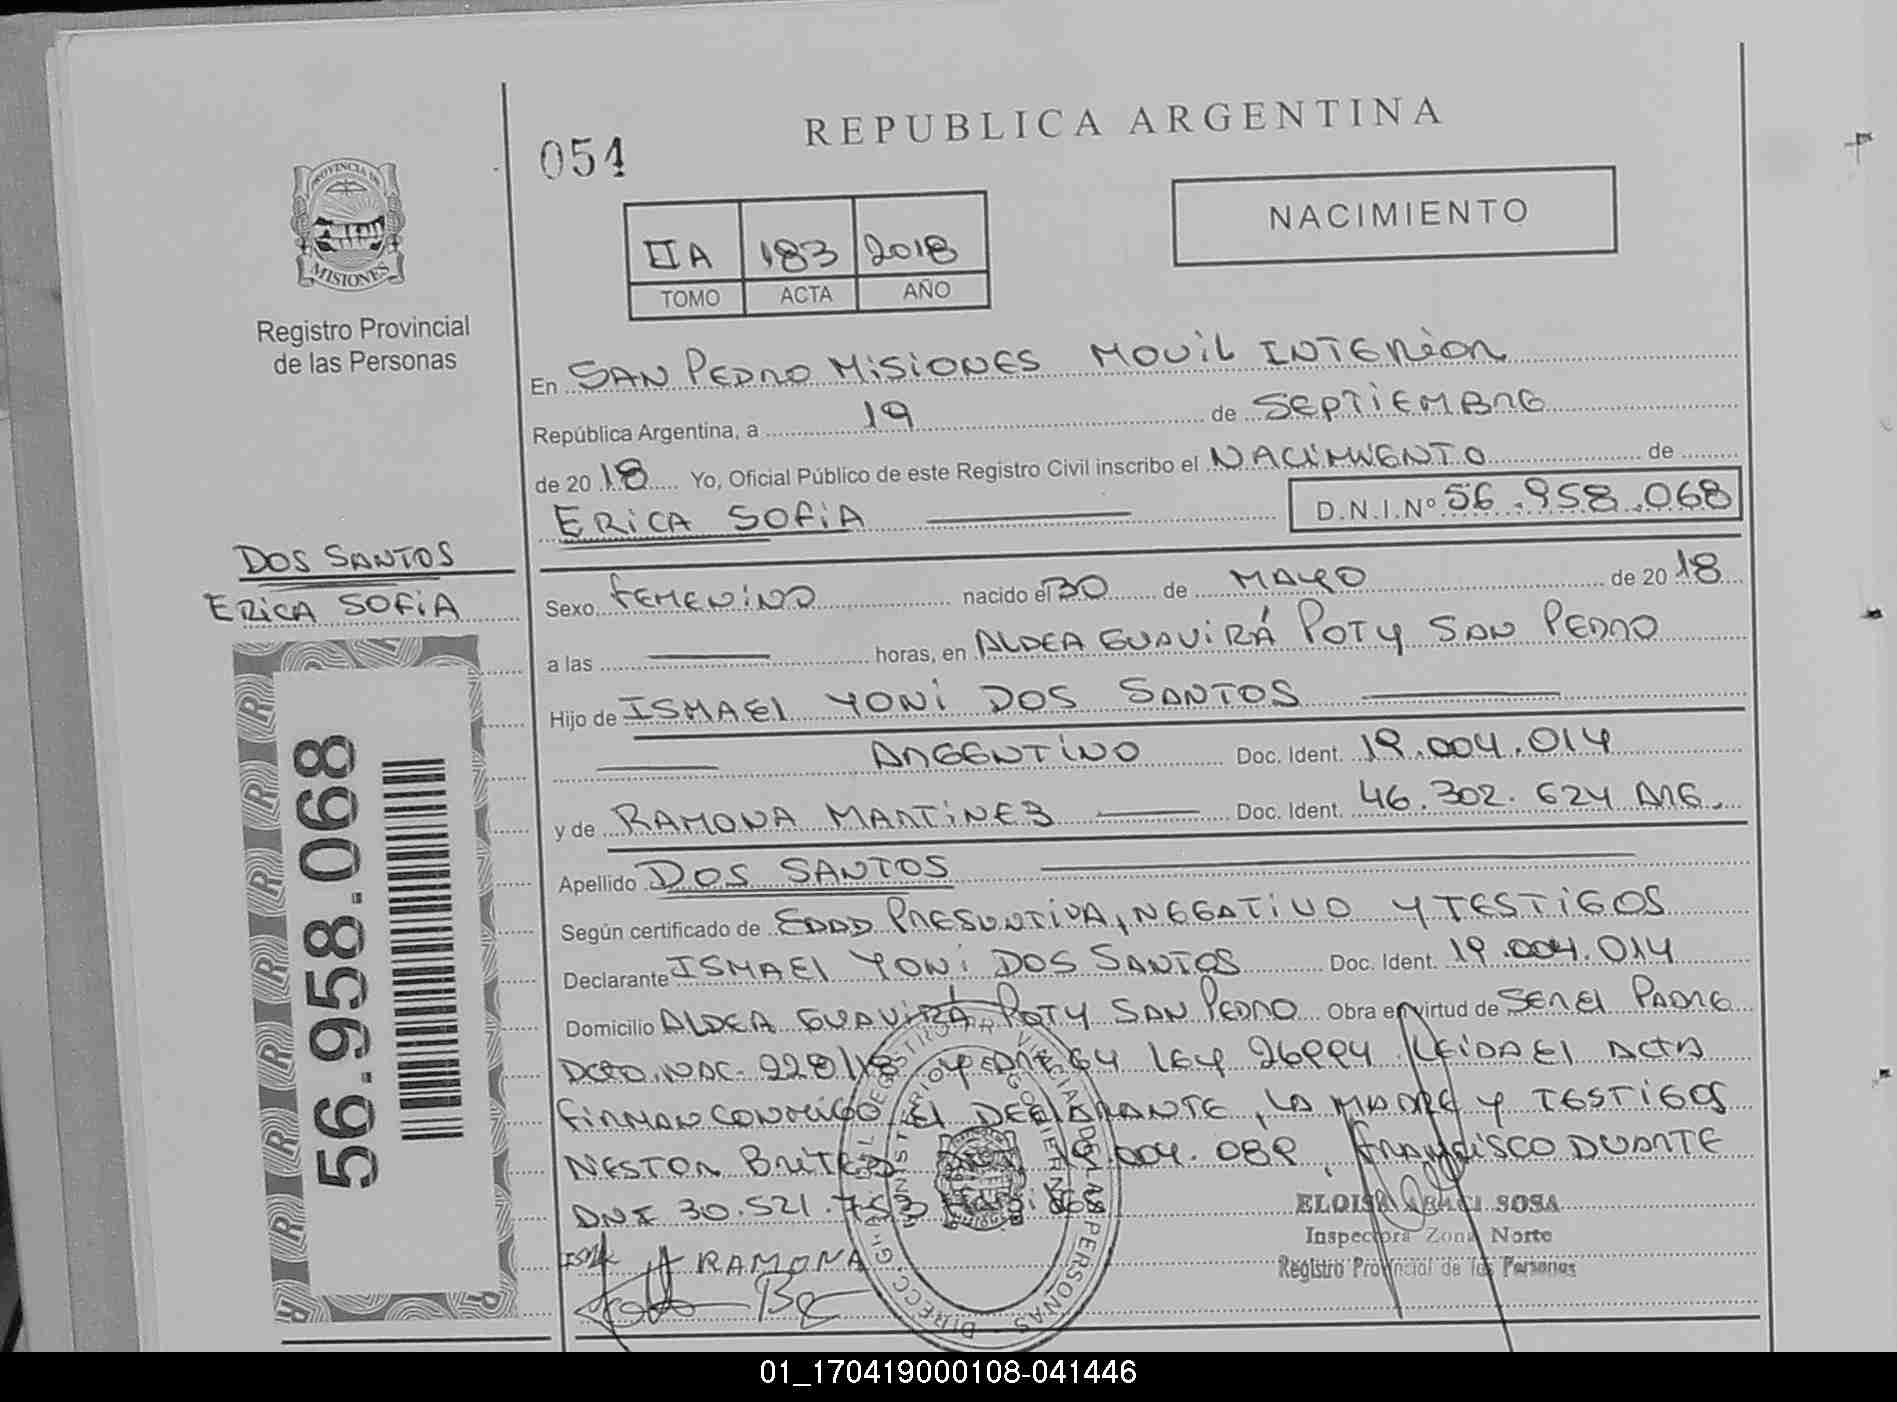 REPUBLICA ARGENTINA
054
NACIMIENTO
IIA 183 2018
TOMO ACTA AÑO
PROVINCIA DE
MISIONES
Registro Provincial
de las Personas
En SAN PEDRO MISIONES MOVIL INTERIOR
República Argentina, a 19 de SEPTIEMBRE
de 2018 Yo, Oficial Público de este Registro Civil inscribo el NACIMIENTO de
ERICA SOFIA D.N.I.Nº 56.958.068
DOS SANTOS
ERICA SOFIA
Sexo FEMENINO nacido el 30 de MAYO de 2018
a las horas, en ALDEA GUAVIRÁ POTY SAN PEDRO
Hijo de ISMAEL YONI DOS SANTOS
ARGENTINO Doc. Ident. 19.004.014
y de RAMONA MARTINEZ Doc. Ident. 46.302.624 ARG.
Apellido DOS SANTOS
Según certificado de EDAD PRESUNTIVA, NEGATIVO Y TESTIGOS
Declarante ISMAEL YONI DOS SANTOS Doc. Ident. 19.004.014
Domicilio ALDEA GUAVIRÁ POTY SAN PEDRO Obra en virtud de SER EL PADRE
DCTO. NAC. 228/18 Y ART 64 LEY 26994. LEIDA EL ACTA
FIRMAN CONMIGO EL DECLARANTE, LA MADRE Y TESTIGOS
NESTOR BRITEZ 19.004.089, FRANCISCO DUARTE
DNI 30.521.753
RAMONA
56.958.068
DIRECC. GRAL. DEL REGISTRO PROVINCIAL DE LAS PERSONAS
MINISTERIO DE GOBIERNO
ELOISA ARACI SOSA
Inspectora Zona Norte
Registro Provincial de las Personas
01_170419000108-041446